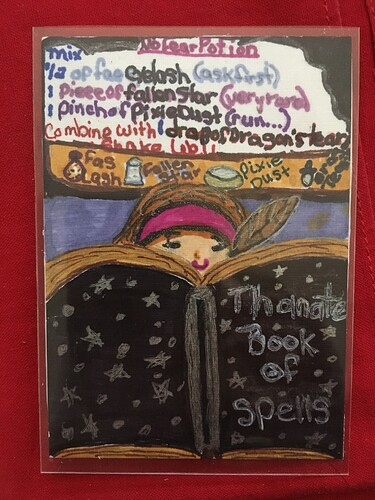 No Fear Potion
mix
1/2 of fae eyelash (ask first)
1 piece of fallen star (very rare)
1 pinch of Pixie Dust (run...)
Combine with 1 drop of Dragon's tear
Shake Well
Fae
Lash
Fallen
Star
Pixie
Dust
Thanate
Book
of
Spells